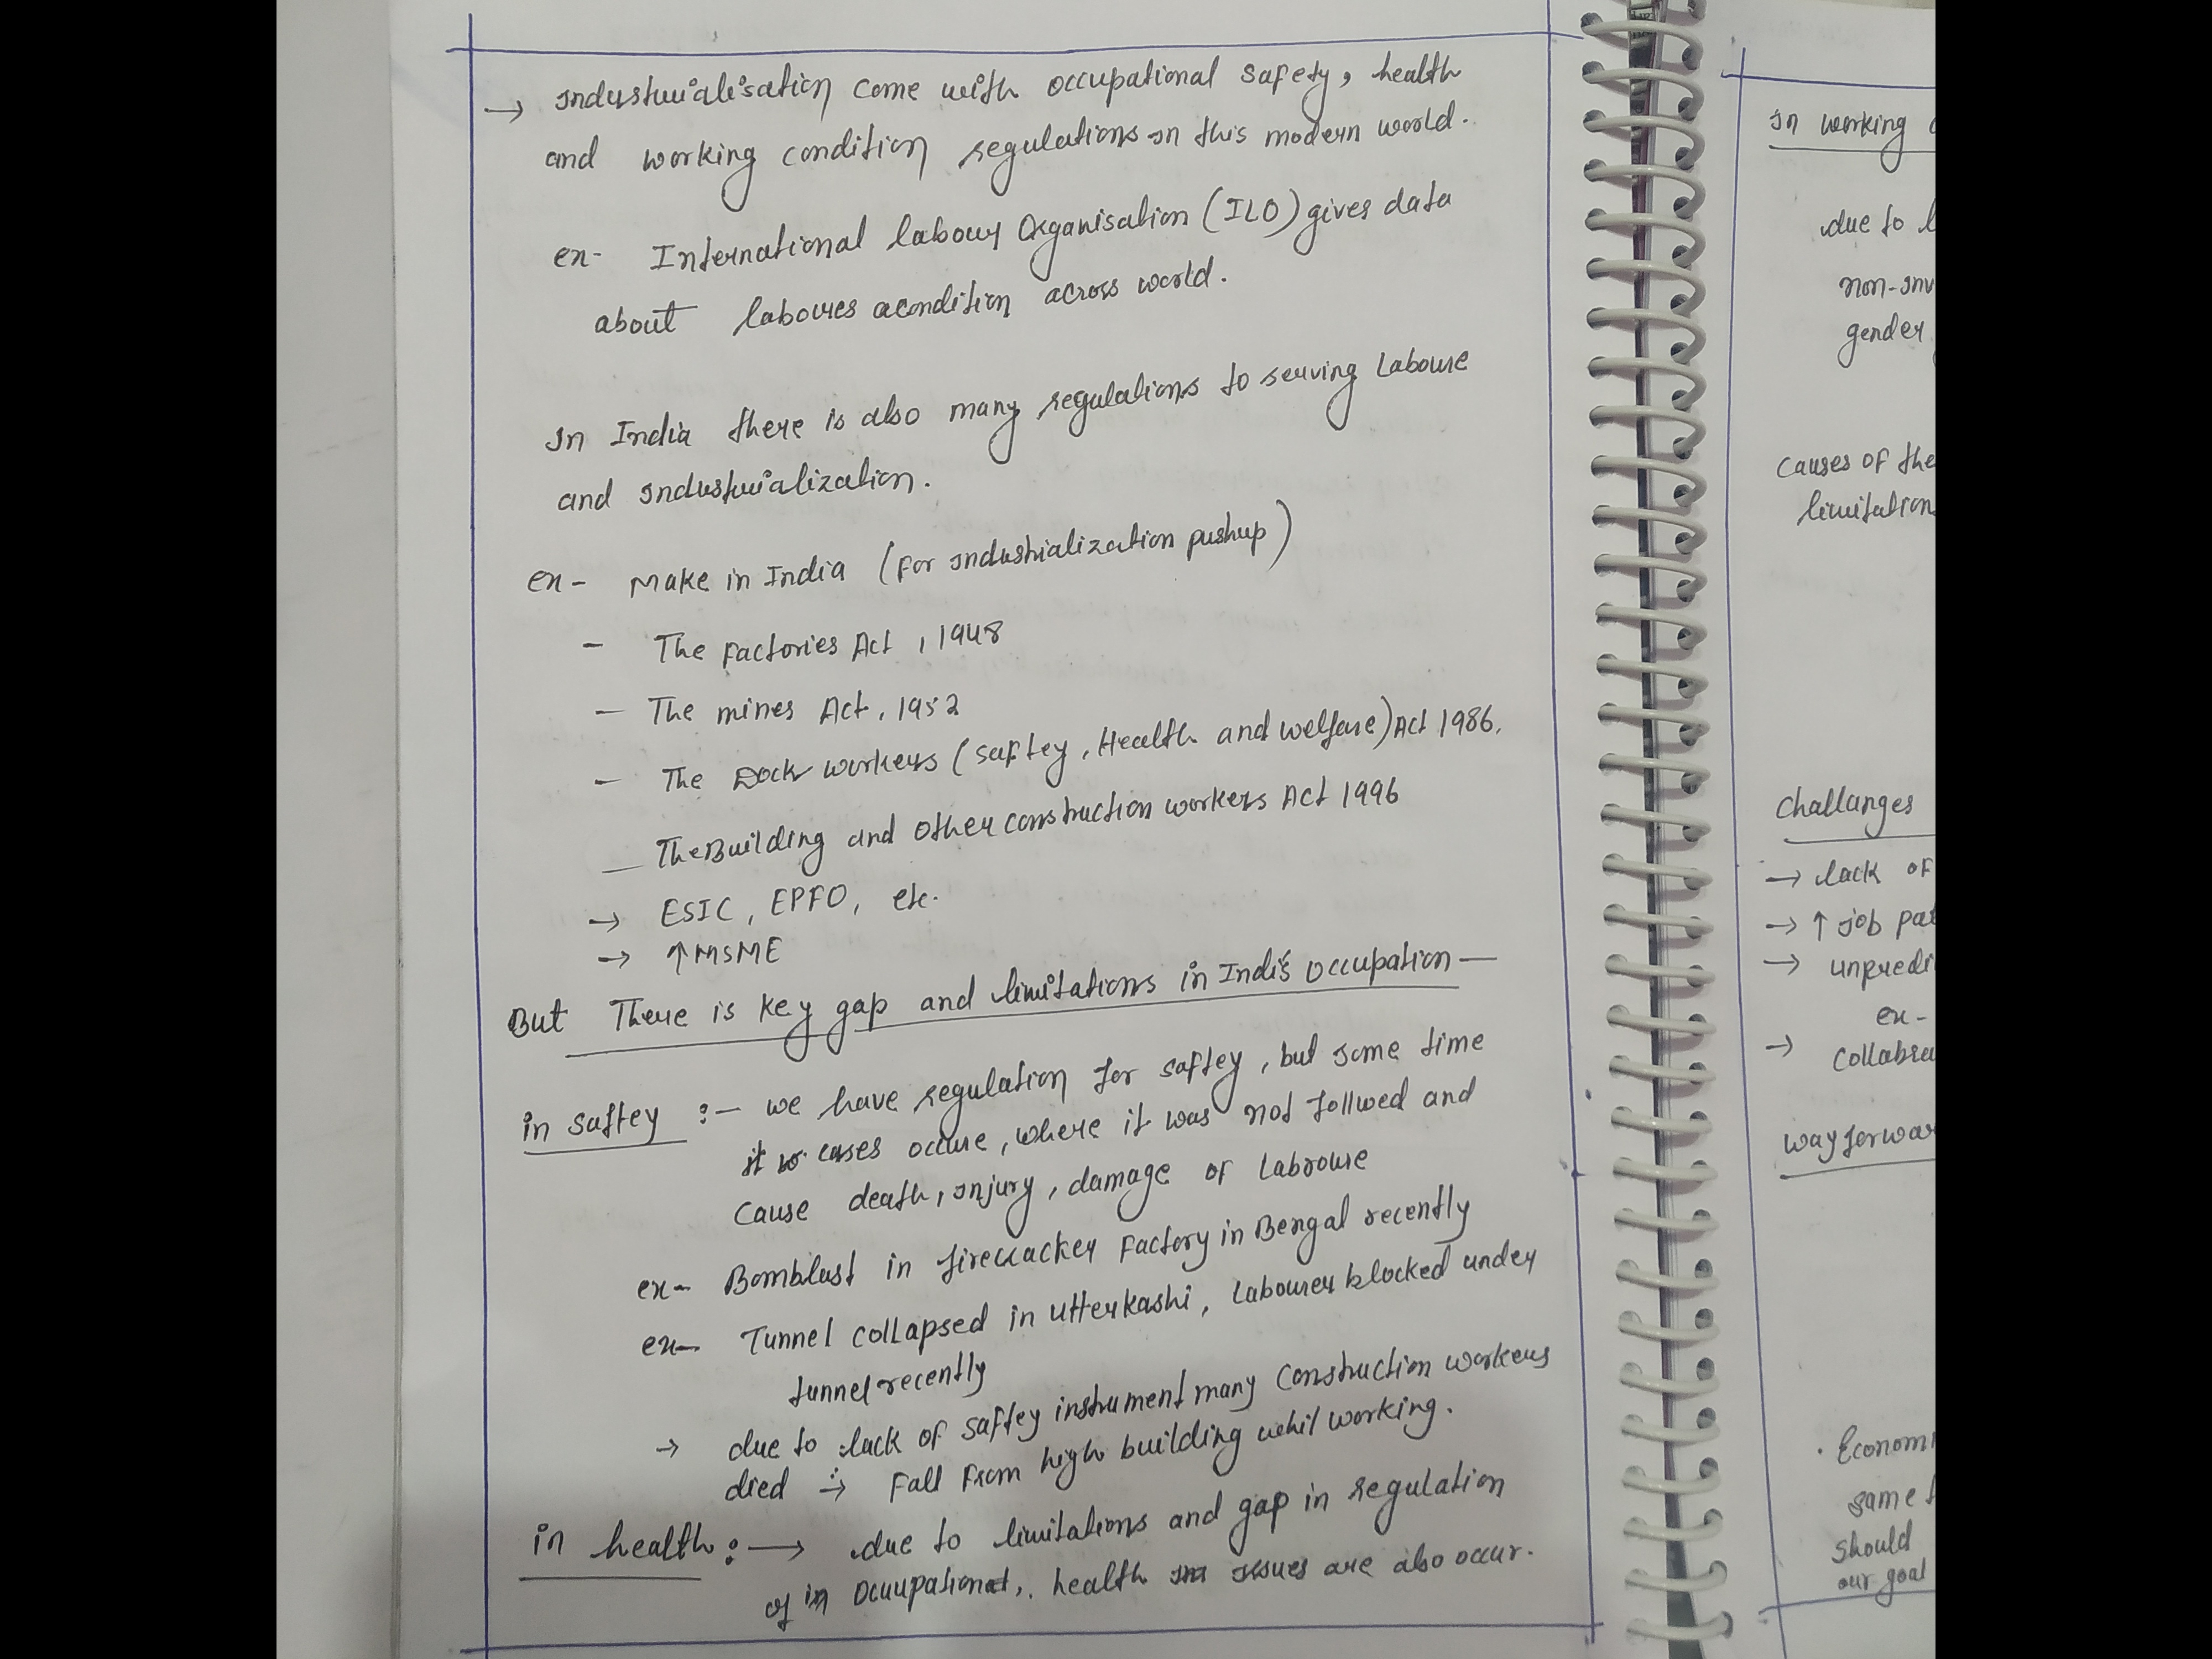 → industrialisation come with occupational safety, health
and working condition regulations in this modern world.
ex- International labour Organisation (ILO) gives data
about laboures acondition across world.
In India there is also many regulations to serving Laboure
and industrialization.
ex- Make in India (for industrialization pushup)
- The factories Act, 1948
- The mines Act, 1952
- The Dock workers (saftey, Health and welfare) Act 1986.
- The Building and other construction workers Act 1996
→ ESIC, EPFO, etc.
→ ↑MSME
But There is key gap and limitations in Indi's occupation —
in saftey :- we have regulation for saftey, but some time
it cases occure, where it was not follwed and
cause death, injury, damage of Labroure
ex- Bomblast in firecracker factory in Bengal recently
ex- Tunnel collapsed in Utterkashi, labourer blocked under
tunnel recently
→ due to lack of saftey instrument many construction workers
died → Fall from high building whil working.
in health :→ due to limitations and gap in regulation
of in Occupation, health issues are also occur.
In working
due to
non-inv
gender
causes of the
limitation
challanges
→ lack of
→ ↑ job
→ unpredi
ex-
→ collabra
way forwar
· Econom
same
should
our goal